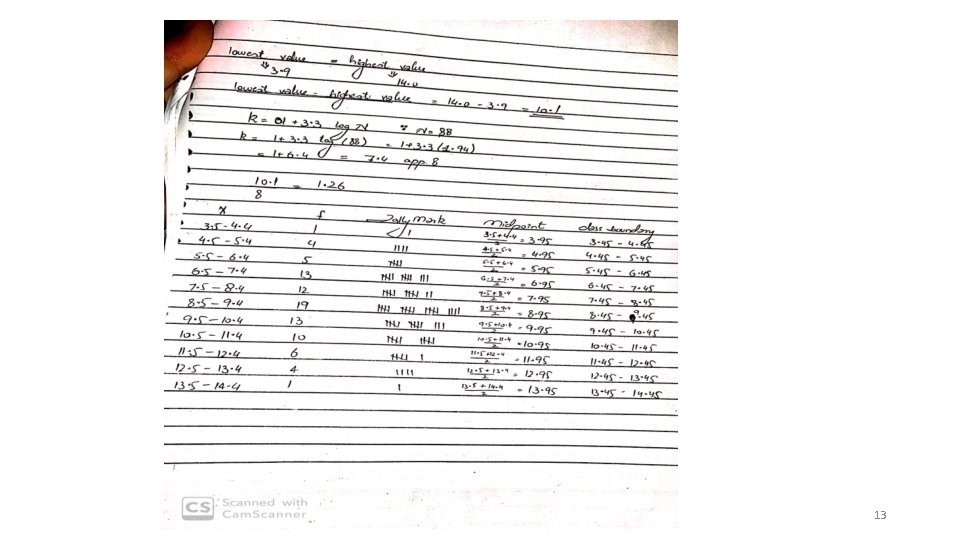 lowest value = highest value
3.9 14.0
lowest value - highest value = 14.0 - 3.9 = 10.1
k = 01 + 3.3 log N ∵ N = 88
k = 1 + 3.3 log (88) = 1 + 3.3 (1.94)
= 1 + 6.4 = 7.4 app. 8
10.1/8 = 1.26
x f Tally Mark Midpoint class boundary
3.5 - 4.4 1 I 3.5+4.4/2 = 3.95 3.45 - 4.45
4.5 - 5.4 4 IIII 4.5+5.4/2 = 4.95 4.45 - 5.45
5.5 - 6.4 5 IIII 5.5+6.4/2 = 5.95 5.45 - 6.45
6.5 - 7.4 13 IIII IIII III 6.5+7.4/2 = 6.95 6.45 - 7.45
7.5 - 8.4 12 IIII IIII II 7.5+8.4/2 = 7.95 7.45 - 8.45
8.5 - 9.4 19 IIII IIII IIII IIII 8.5+9.4/2 = 8.95 8.45 - 9.45
9.5 - 10.4 13 IIII IIII III 9.5+10.4/2 = 9.95 9.45 - 10.45
10.5 - 11.4 10 IIII IIII 10.5+11.4/2 = 10.95 10.45 - 11.45
11.5 - 12.4 6 IIII I 11.5+12.4/2 = 11.95 11.45 - 12.45
12.5 - 13.4 4 IIII 12.5+13.4/2 = 12.95 12.45 - 13.45
13.5 - 14.4 1 I 13.5+14.4/2 = 13.95 13.45 - 14.45
CS Scanned with
CamScanner
13